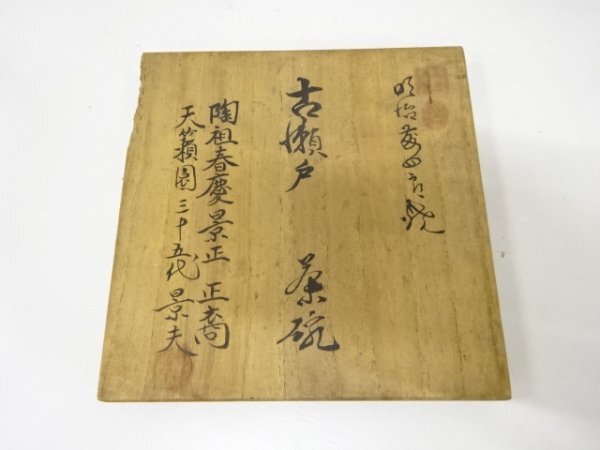 明治藤四郎焼
古瀬戸 茶碗
陶祖春慶景正 正裔
天籟園 三十五代 景夫